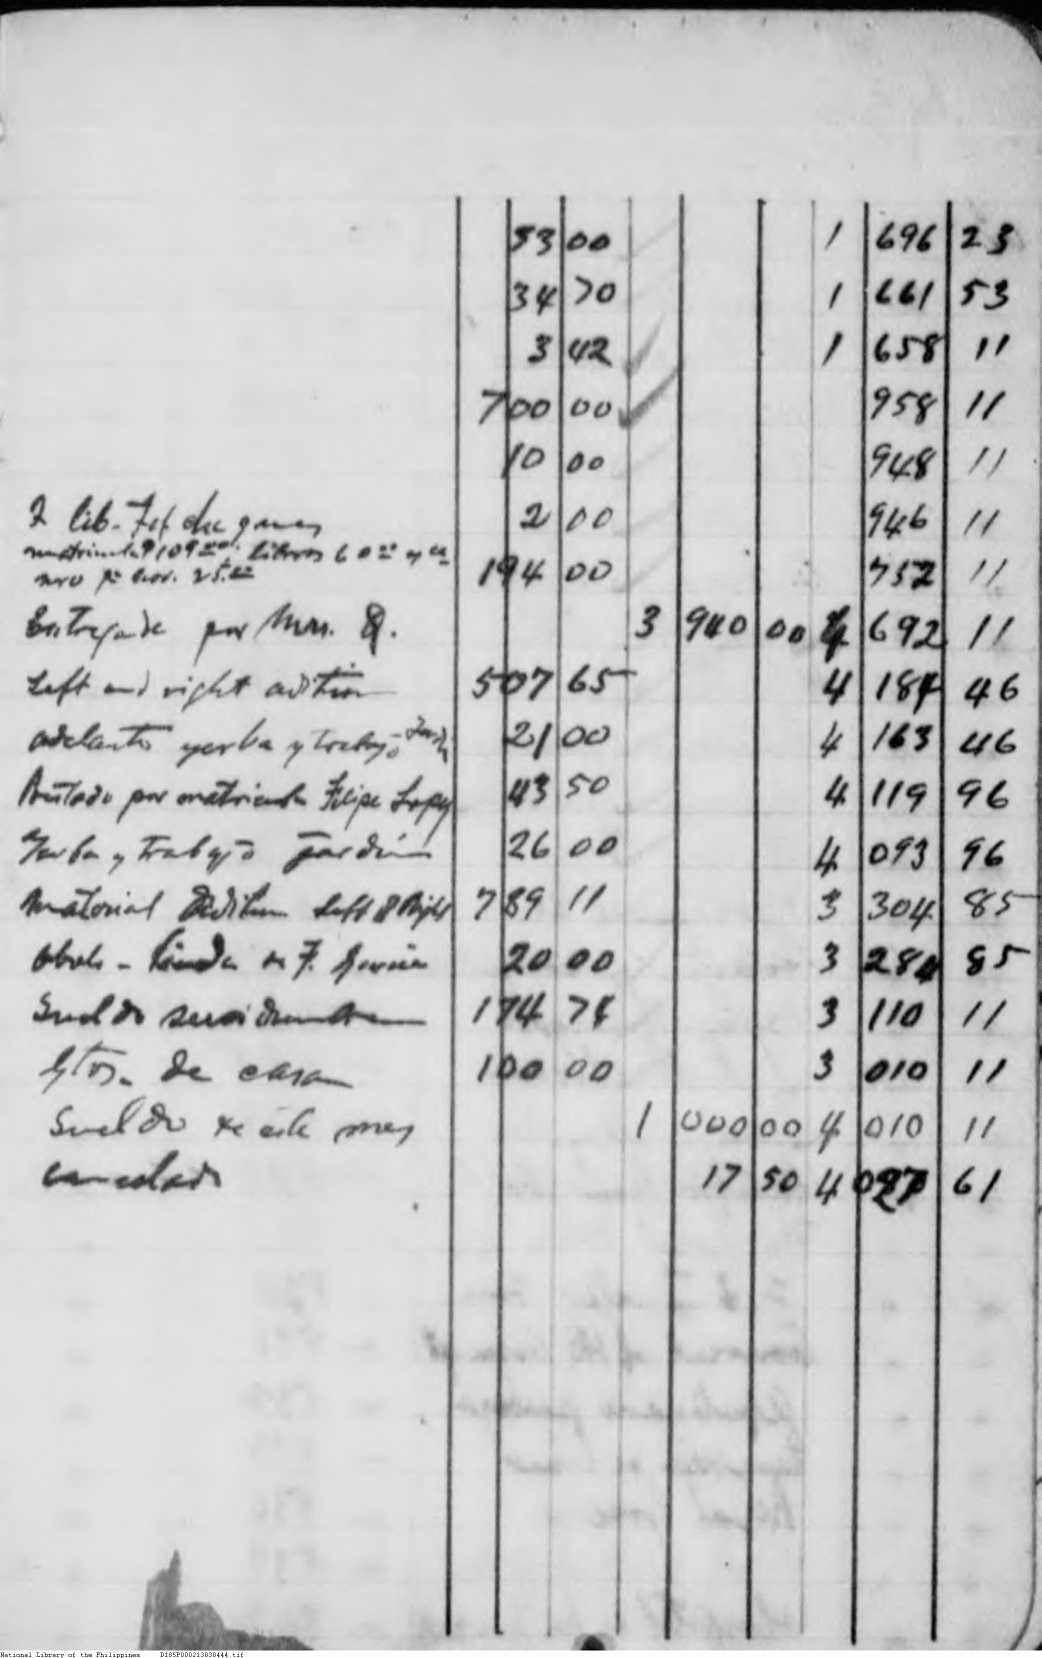 33 00 1 696 23
34 70 1 661 53
3 42 1 658 11
700 00 958 11
10 00 948 11
2 lib. 2 00 946 11
matricula ₱109.00 libros 60.00 y
25.00 194 00 752 11
Entregado por Mrs. Q. 3 940 00 4 692 11
Left and right adition 507 65 4 184 46
adelanto yerba y trabajo 21 00 4 163 46
por matricula Filipe Lopez 43 50 4 119 96
Yerba y trabajo jardin 26 00 4 093 96
Material Adition Left & Right 789 11 3 304 85
20 00 3 284 85
Sueldo 174 74 3 110 11
Gtos. de casa 100 00 3 010 11
Sueldo de este mes 1 000 00 4 010 11
cancelado 17 50 4 027 61
National Library of the Philippines D185P000213030444.tif